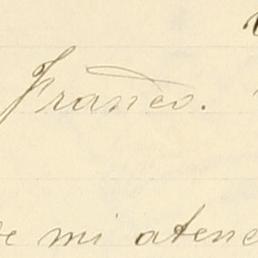 Franco.
de mi atenc